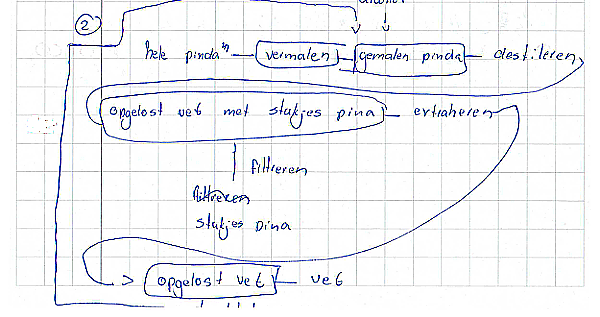 2
hele pinda's vermalen gemalen pinda destileren
opgelost vet met stukjes pina extraheren
filtreren
filtreren
stukjes pina
opgelost vet vet